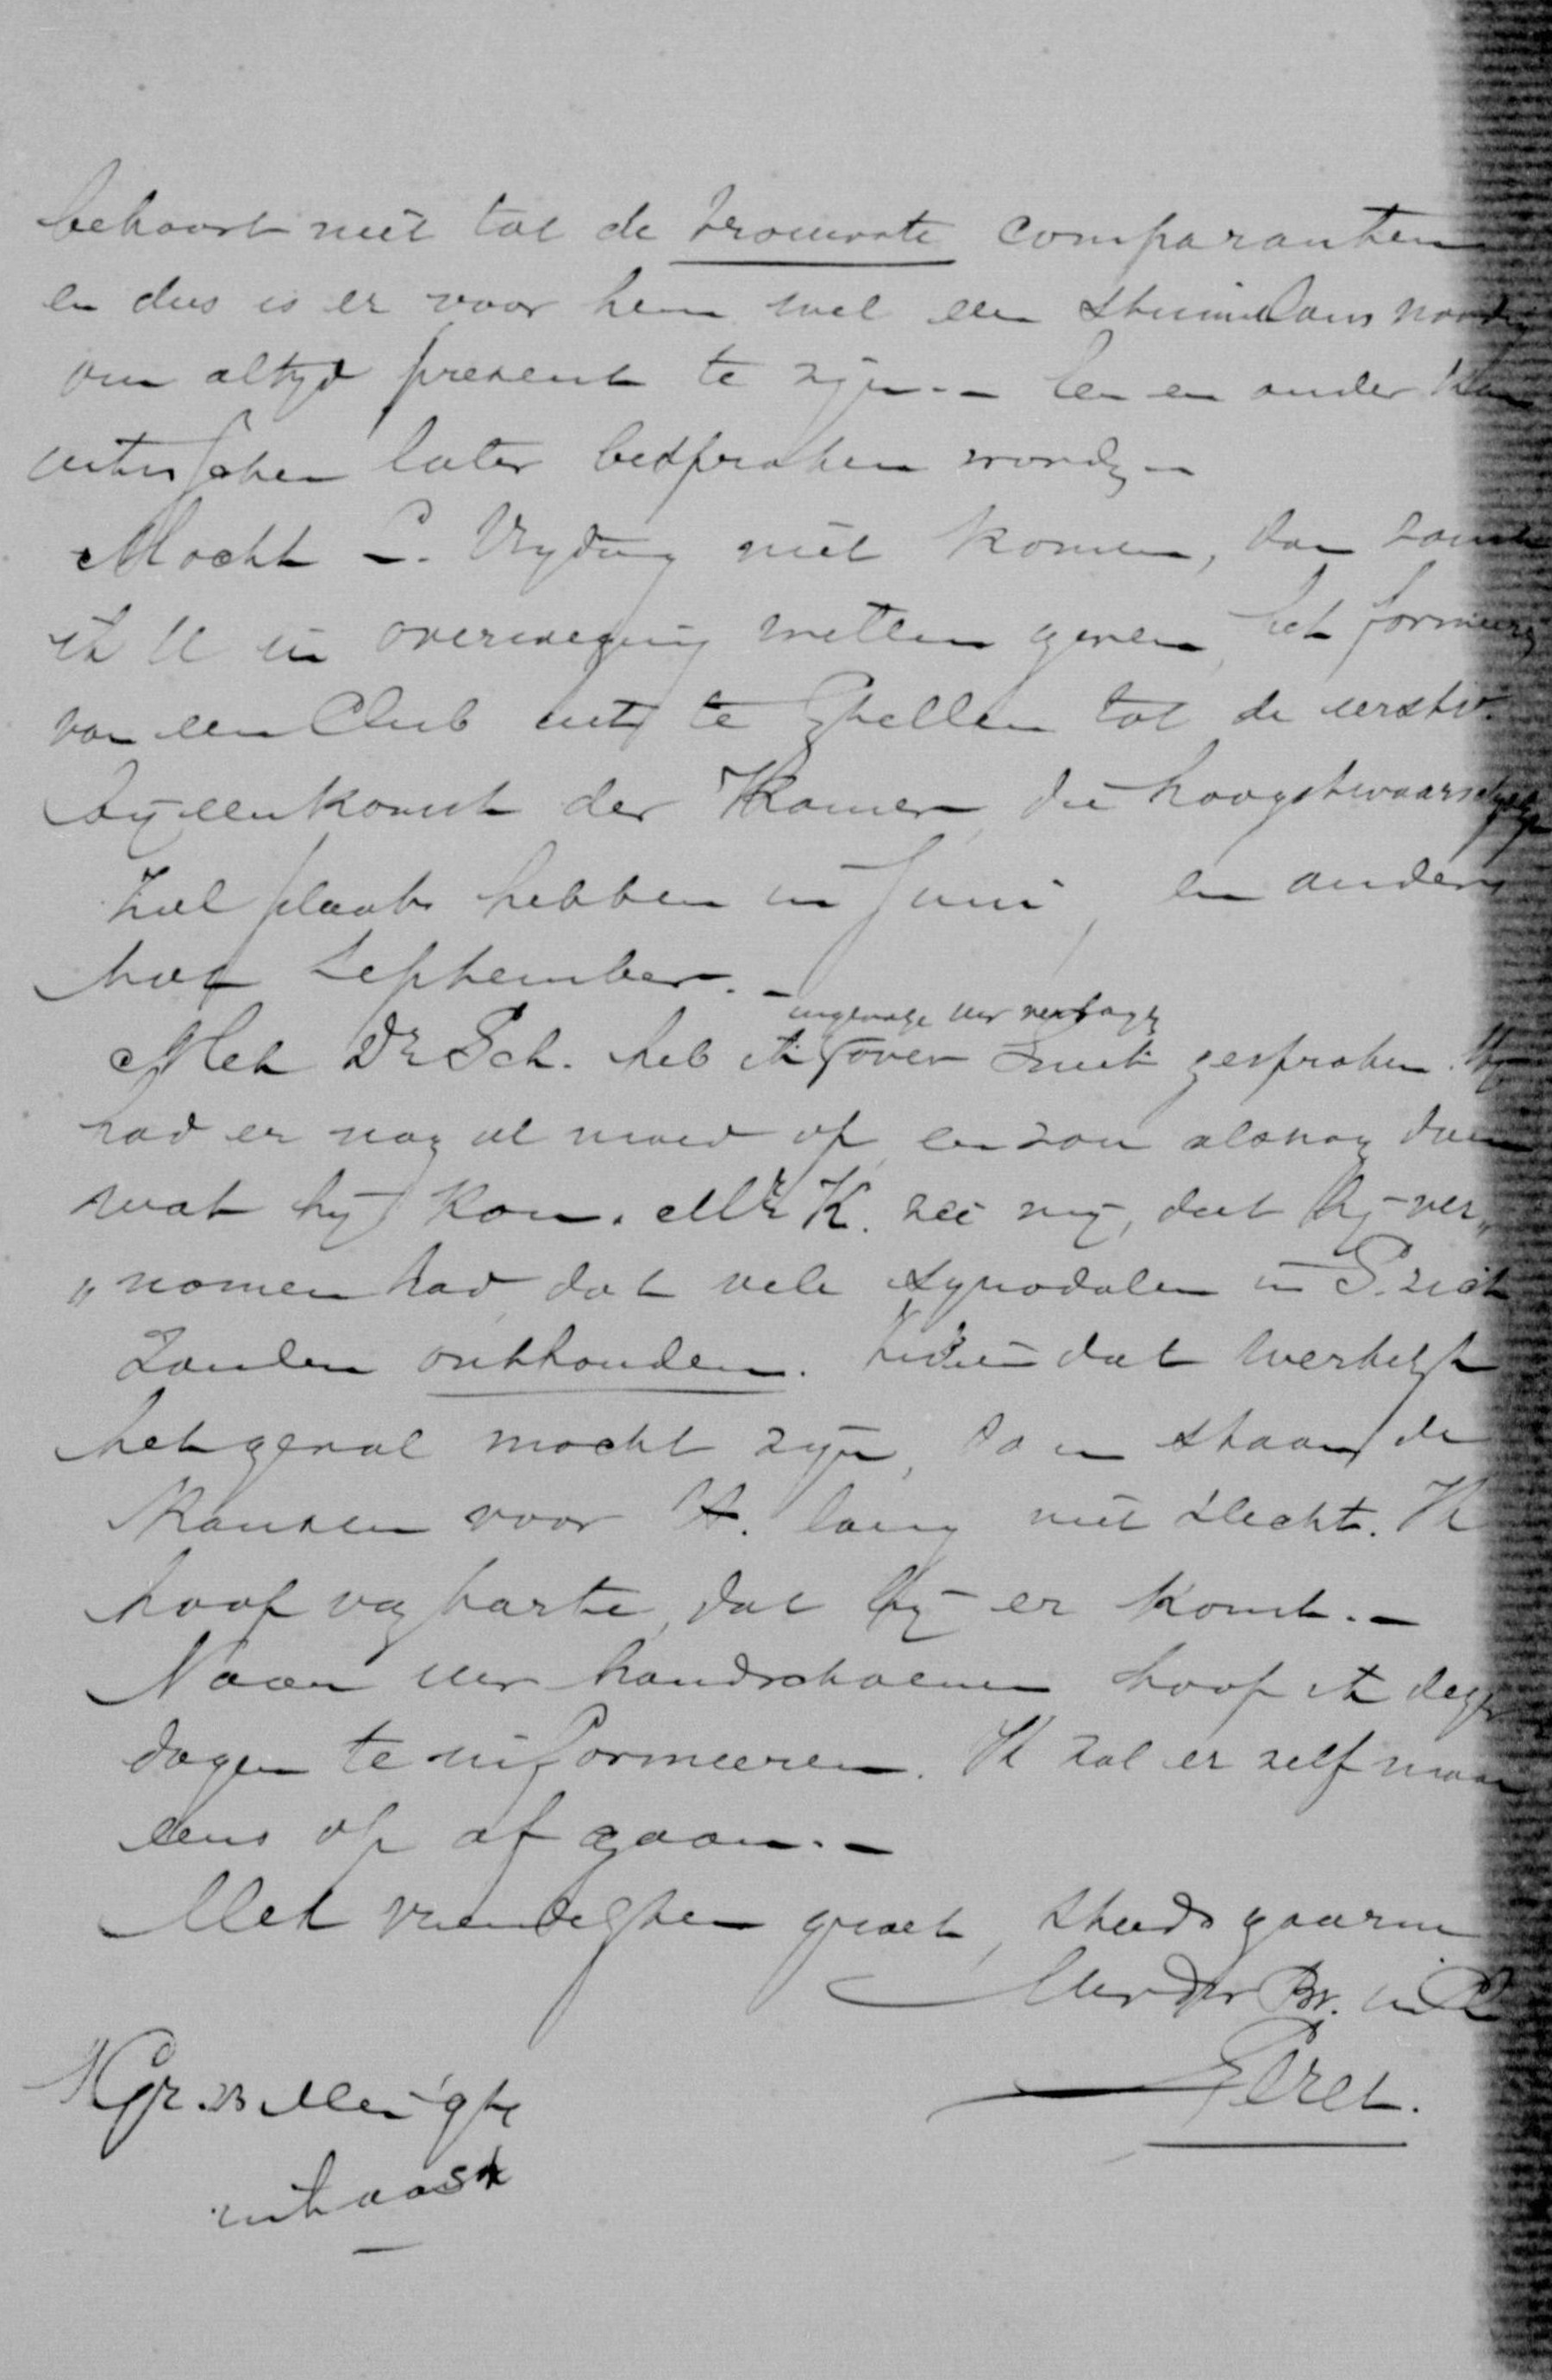 behoort niet tot de trouwste comparanten
en dus is er voor hem wel een stimulans noodig
om altijd present te zijn. - Een en ander kan
intusschen later besproken worden
Mocht C. Vrydag niet komen, dan zoude
ik U in overweging willen geven, het formeeren
van een Club uit te stellen tot de eerstv.
byeenkomst der Kamer, die hoogstwaarschijnlijk
zal plaats hebben in Juni, en anders
half September. -
ingevolge uw verlangen
Met Dr. Sch. heb ik over Smit gesproken. Hij
had er nog al moed op en zou alsnog doen
wat hij kon. Mr K. zei mij, dat hij ver„
„nomen had dat vele synodalen in S. zich
zouden onthouden. Indien dat werkelijk
het geval mocht zijn, dan staan de
kansen voor H. lang niet slecht. Ik
hoop van harte, dat hij er komt. -
Naar uw handschoenen hoop ik dezer
dagen te informeeren. Ik zal er zelf maar
eens op af gaan. -
Met vriendelijken groet, steeds gaarne
Uw dw Br. in C
23 Mei
in haast